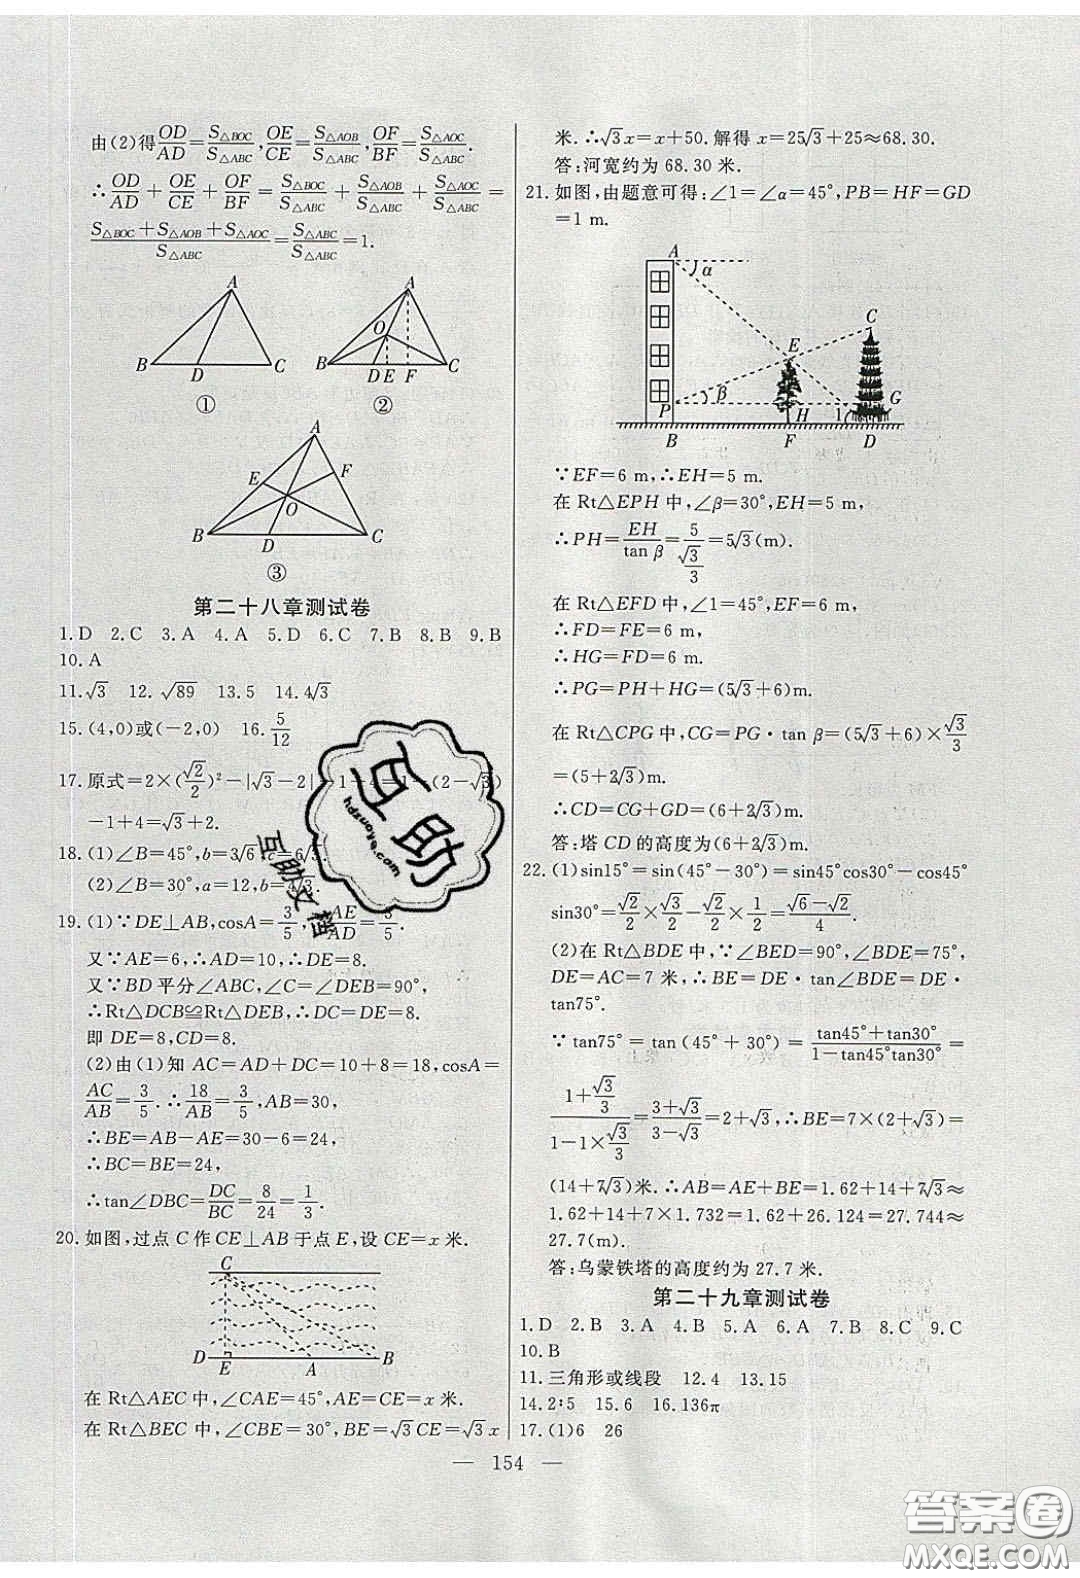 由(2)得OD/AD=S△BOC/S△ABC,OE/CE=S△AOB/S△ABC,OF/BF=S△AOC/S△ABC.
∴OD/AD+OE/CE+OF/BF=S△BOC/S△ABC+S△AOB/S△ABC+S△AOC/S△ABC=
(S△BOC+S△AOB+S△AOC)/S△ABC=S△ABC/S△ABC=1.
A
B D C
①
A
O
B D E F C
②
A
E F
O
B D C
③
第二十八章测试卷
1.D 2.C 3.A 4.A 5.D 6.C 7.B 8.B 9.B
10.A
11.√3 12.√89 13.5 14.4√3
15.(4,0)或(-2,0) 16.5/12
17.原式=2×(√2/2)²-|√3-2| (2-√3)
-1+4=√3+2.
18.(1)∠B=45°,b=3√6,c=6√3.
(2)∠B=30°,a=12,b=4√3.
19.(1)∵DE⊥AB,cosA=3/5,∴AE/AD=3/5.
又∵AE=6,∴AD=10,∴DE=8.
又∵BD平分∠ABC,∠C=∠DEB=90°,
∴Rt△DCB≌Rt△DEB,∴DC=DE=8.
即DE=8,CD=8.
(2)由(1)知AC=AD+DC=10+8=18,cosA=
AC/AB=3/5.∴18/AB=3/5,AB=30,
∴BE=AB-AE=30-6=24,
∴BC=BE=24,
∴tan∠DBC=DC/BC=8/24=1/3.
20.如图,过点C作CE⊥AB于点E,设CE=x米.
C
D E A B
在Rt△AEC中,∠CAE=45°,AE=CE=x米.
在Rt△BEC中,∠CBE=30°,BE=√3CE=√3x
米.∴√3x=x+50.解得x=25√3+25≈68.30.
答:河宽约为68.30米.
21.如图,由题意可得:∠1=∠α=45°,PB=HF=GD
=1 m.
A α
C
E
P β H 1 G
B F D
∵EF=6 m,∴EH=5 m.
在Rt△EPH中,∠β=30°,EH=5 m,
∴PH=EH/tan β=5/(√3/3)=5√3(m).
在Rt△EFD中,∠1=45°,EF=6 m,
∴FD=FE=6 m,
∴HG=FD=6 m.
∴PG=PH+HG=(5√3+6)m.
在Rt△CPG中,CG=PG·tan β=(5√3+6)×√3/3
=(5+2√3)m.
∴CD=CG+GD=(6+2√3)m.
答:塔CD的高度为(6+2√3)m.
22.(1)sin15°=sin(45°-30°)=sin45°cos30°-cos45°
sin30°=√2/2×√3/2-√2/2×1/2=(√6-√2)/4.
(2)在Rt△BDE中,∵∠BED=90°,∠BDE=75°,
DE=AC=7米,∴BE=DE·tan∠BDE=DE·
tan75°.
∵tan75°=tan(45°+30°)=(tan45°+tan30°)/(1-tan45°tan30°)=
(1+√3/3)/(1-1×√3/3)=(3+√3)/(3-√3)=2+√3,∴BE=7×(2+√3)=
(14+7√3)米.∴AB=AE+BE=1.62+14+7√3≈
1.62+14+7×1.732=1.62+26.124=27.744≈
27.7(m).
答:乌蒙铁塔的高度约为27.7米.
第二十九章测试卷
1.D 2.B 3.A 4.B 5.A 6.A 7.B 8.C 9.C
10.B
11.三角形或线段 12.4 13.15
14.2:5 15.6 16.136π
17.(1)6 26
— 154 —
互助
hdzuoye.com
互助文档
答案圈
MXQE.COM